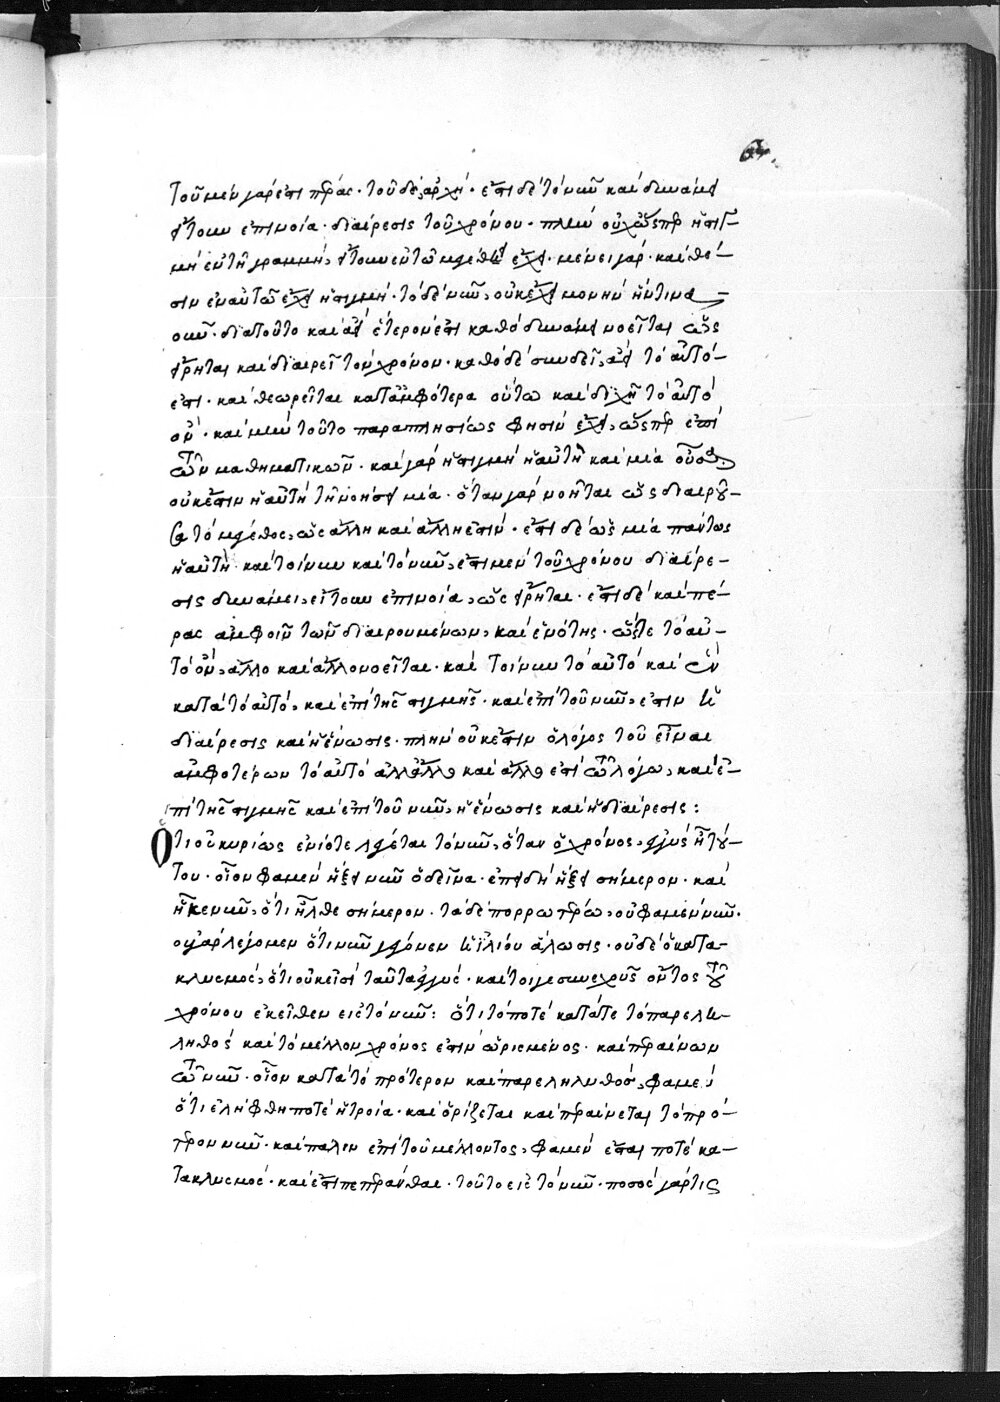 τοῦ μὲν γάρ ἐστι πέρας· τοῦ δὲ, ἀρχή· ἔστι δὲ τὸ νῦν καὶ δυνάμει
ἤτουν ἐπινοία διαίρεσις τοῦ χρόνου· πλὴν οὐχ ὥσπερ ἡ στιγ-
μὴ ἐν τῆ γραμμῆ, ἤτουν ἐν τῶ μεγέθει ἔχει· μένει γὰρ· καὶ θέ-
σιν ἐν αὐτῶ ἔχει ἡ στιγμή· τὸ δὲ νῦν, οὐκ ἔχει μονὴν ἥντινα-
οῦν· διατοῦτο καὶ ἀεὶ ἕτερόν ἐστι καθὸ δυνάμει νοεῖται ὡς
εἴρηται καὶ διαιρεῖ τὸν χρόνον· καθὸ δὲ συνδεῖ, ἀεὶ τὸ αὐτό-
ἐστι· καὶ θεωρεῖται κατάμφότερα οὕτω καὶ διχῆ τὸ αὐτὸ
ὄν· καὶ μὴν τοῦτο παραπλησίως φησὶν ἔχει, ὥσπερ ἐπὶ
τῶν μαθηματικῶν· καὶ γὰρ ἡ στιγμὴ ἡ αὐτὴ καὶ μία οὖσα,
οὐκ ἔστιν ἡ αὐτὴ τῆ νοήσει μία· ὅταν γὰρ νοῆται ὡς διαιροῦ-
σα τὸ μέγεθος, ὡς ἄλλη καὶ ἄλλη ἐστίν· ἔστι δὲ ὡς μία πάντως
ἡ αὐτή· καὶ τοίνυν καὶ τὸ νῦν, ἔστι μὲν τοῦ χρόνου διαίρε-
σις δυνάμει, εἴτουν ἐπινοία, ὡς εἴρηται· ἔστι δὲ καὶ πέ-
ρας ἀμφοῖν τῶν διαιρουμένων, καὶ ἑνότης· ὥστε τὸ αὐ-
τὸ ὂν, ἄλλο καὶ ἄλλο νοεῖται· καὶ τοίνυν τὸ αὐτὸ καὶ ἓν
κατὰ τὸ αὐτό, καὶ ἐπὶ τῆς στιγμῆς· καὶ ἐπὶ τοῦ νῦν, ἐστὶν ἡ
διαίρεσις καὶ ἡ ἕνωσις· πλὴν οὐκ ἔστιν ὁ λόγος τοῦ εἶναι
ἀμφοτέρων τὸ αὐτὸ ἀλλ' ἄλλο καὶ ἄλλο ἐστὶ τῶ λόγω, καὶ ἐ-
πὶ τῆς στιγμῆς καὶ ἐπὶ τοῦ νῦν, ἡ ἕνωσις καὶ ἡ διαίρεσις:
Ὅτι οὐ κυρίως ἐνίοτε λέγεται τὸ νῦν, ὅταν ὁ χρόνος, ἐγγὺς ἦ τού-
του· οἷον φαμὲν ἥξει νῦν ὁ δεῖνα· ἐπειδὴ ἥξει σήμερον· καὶ
ἧκε νῦν, ὅτι ἦλθε σήμερον· τὰ δὲ πορρωτέρω, οὐ φαμὲν νῦν·
οὐ γὰρ λέγομεν ὅτι νῦν γέγονεν ἡ ἰλίου ἅλωσις· οὐδὲ ὁ κατα-
κλυσμός, ὅτι οὐκ εἰσὶ ταῦτα ἐγγύς· καίτοιγε συνεχὴς οὗτος τοῦ
χρόνου ἐκεῖθεν εἰς τὸ νῦν: ὅτι τὸ ποτὲ καὶ τότε τὸ παρελη-
ληθὸς καὶ τὸ μέλλον χρόνος ἐστὶν ὡρισμένος· καὶ περαίνων
τῶ νῦν· οἷον κατὰ τὸ πρότερον καὶ παρεληλυθός, φαμὲν
ὅτι ἐλήφθη ποτὲ ἡ τροία· καὶ ὁρίζεται καὶ περαίνεται τὸ πρό-
τερον νῦν· καὶ πάλιν ἐπὶ τοῦ μέλλοντος, φαμὲν ἔσται ποτὲ κα-
τακλυσμός· καὶ ἔστι πεπεράνθαι· τοῦτο εἰς τὸ νῦν· ποσὸς γάρ τις